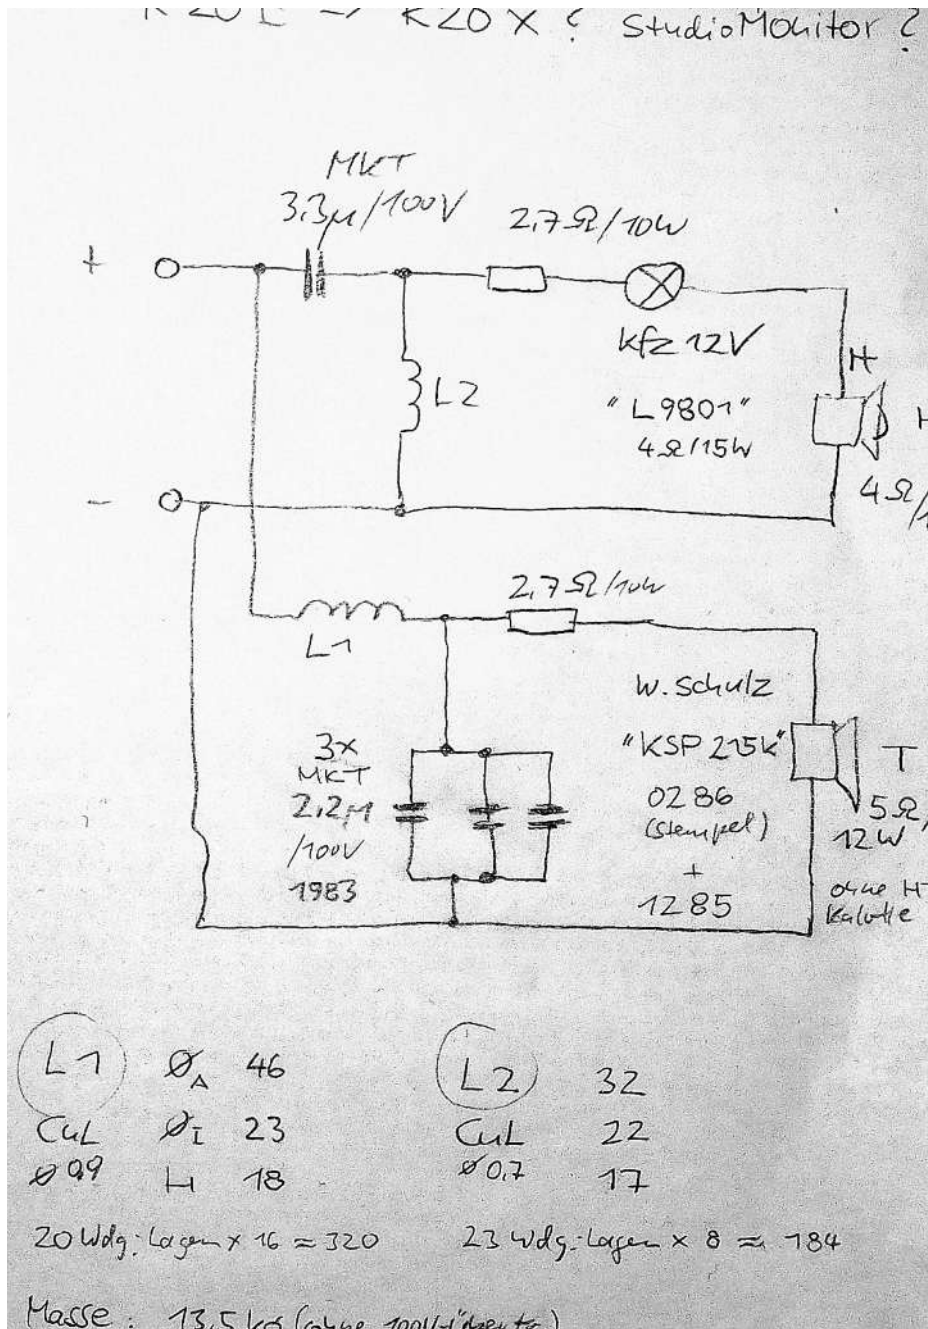 K20 → K20X? StudioMonitor?
MKT
3,3µ/100V
2,7Ω/10W
+
kfz 12V
H
L2
"L9801"
4Ω/15W
4Ω/
-
2,7Ω/10W
L1
W. Schulz
"KSP 215K"
T
3x
MKT
2,2µ
/100V
1983
0286
(Stempel)
+
1285
5Ω,
12W
ohne H
Kalotte
L1 Ø A 46
CuL Ø I 23
Ø 0,9 H 18
20 Wdg. Lagen x 16 ≈ 320
L2 32
CuL 22
Ø 0,7 17
23 Wdg. Lagen x 8 ≈ 184
Masse: 13,5 kg (ohne 100V-